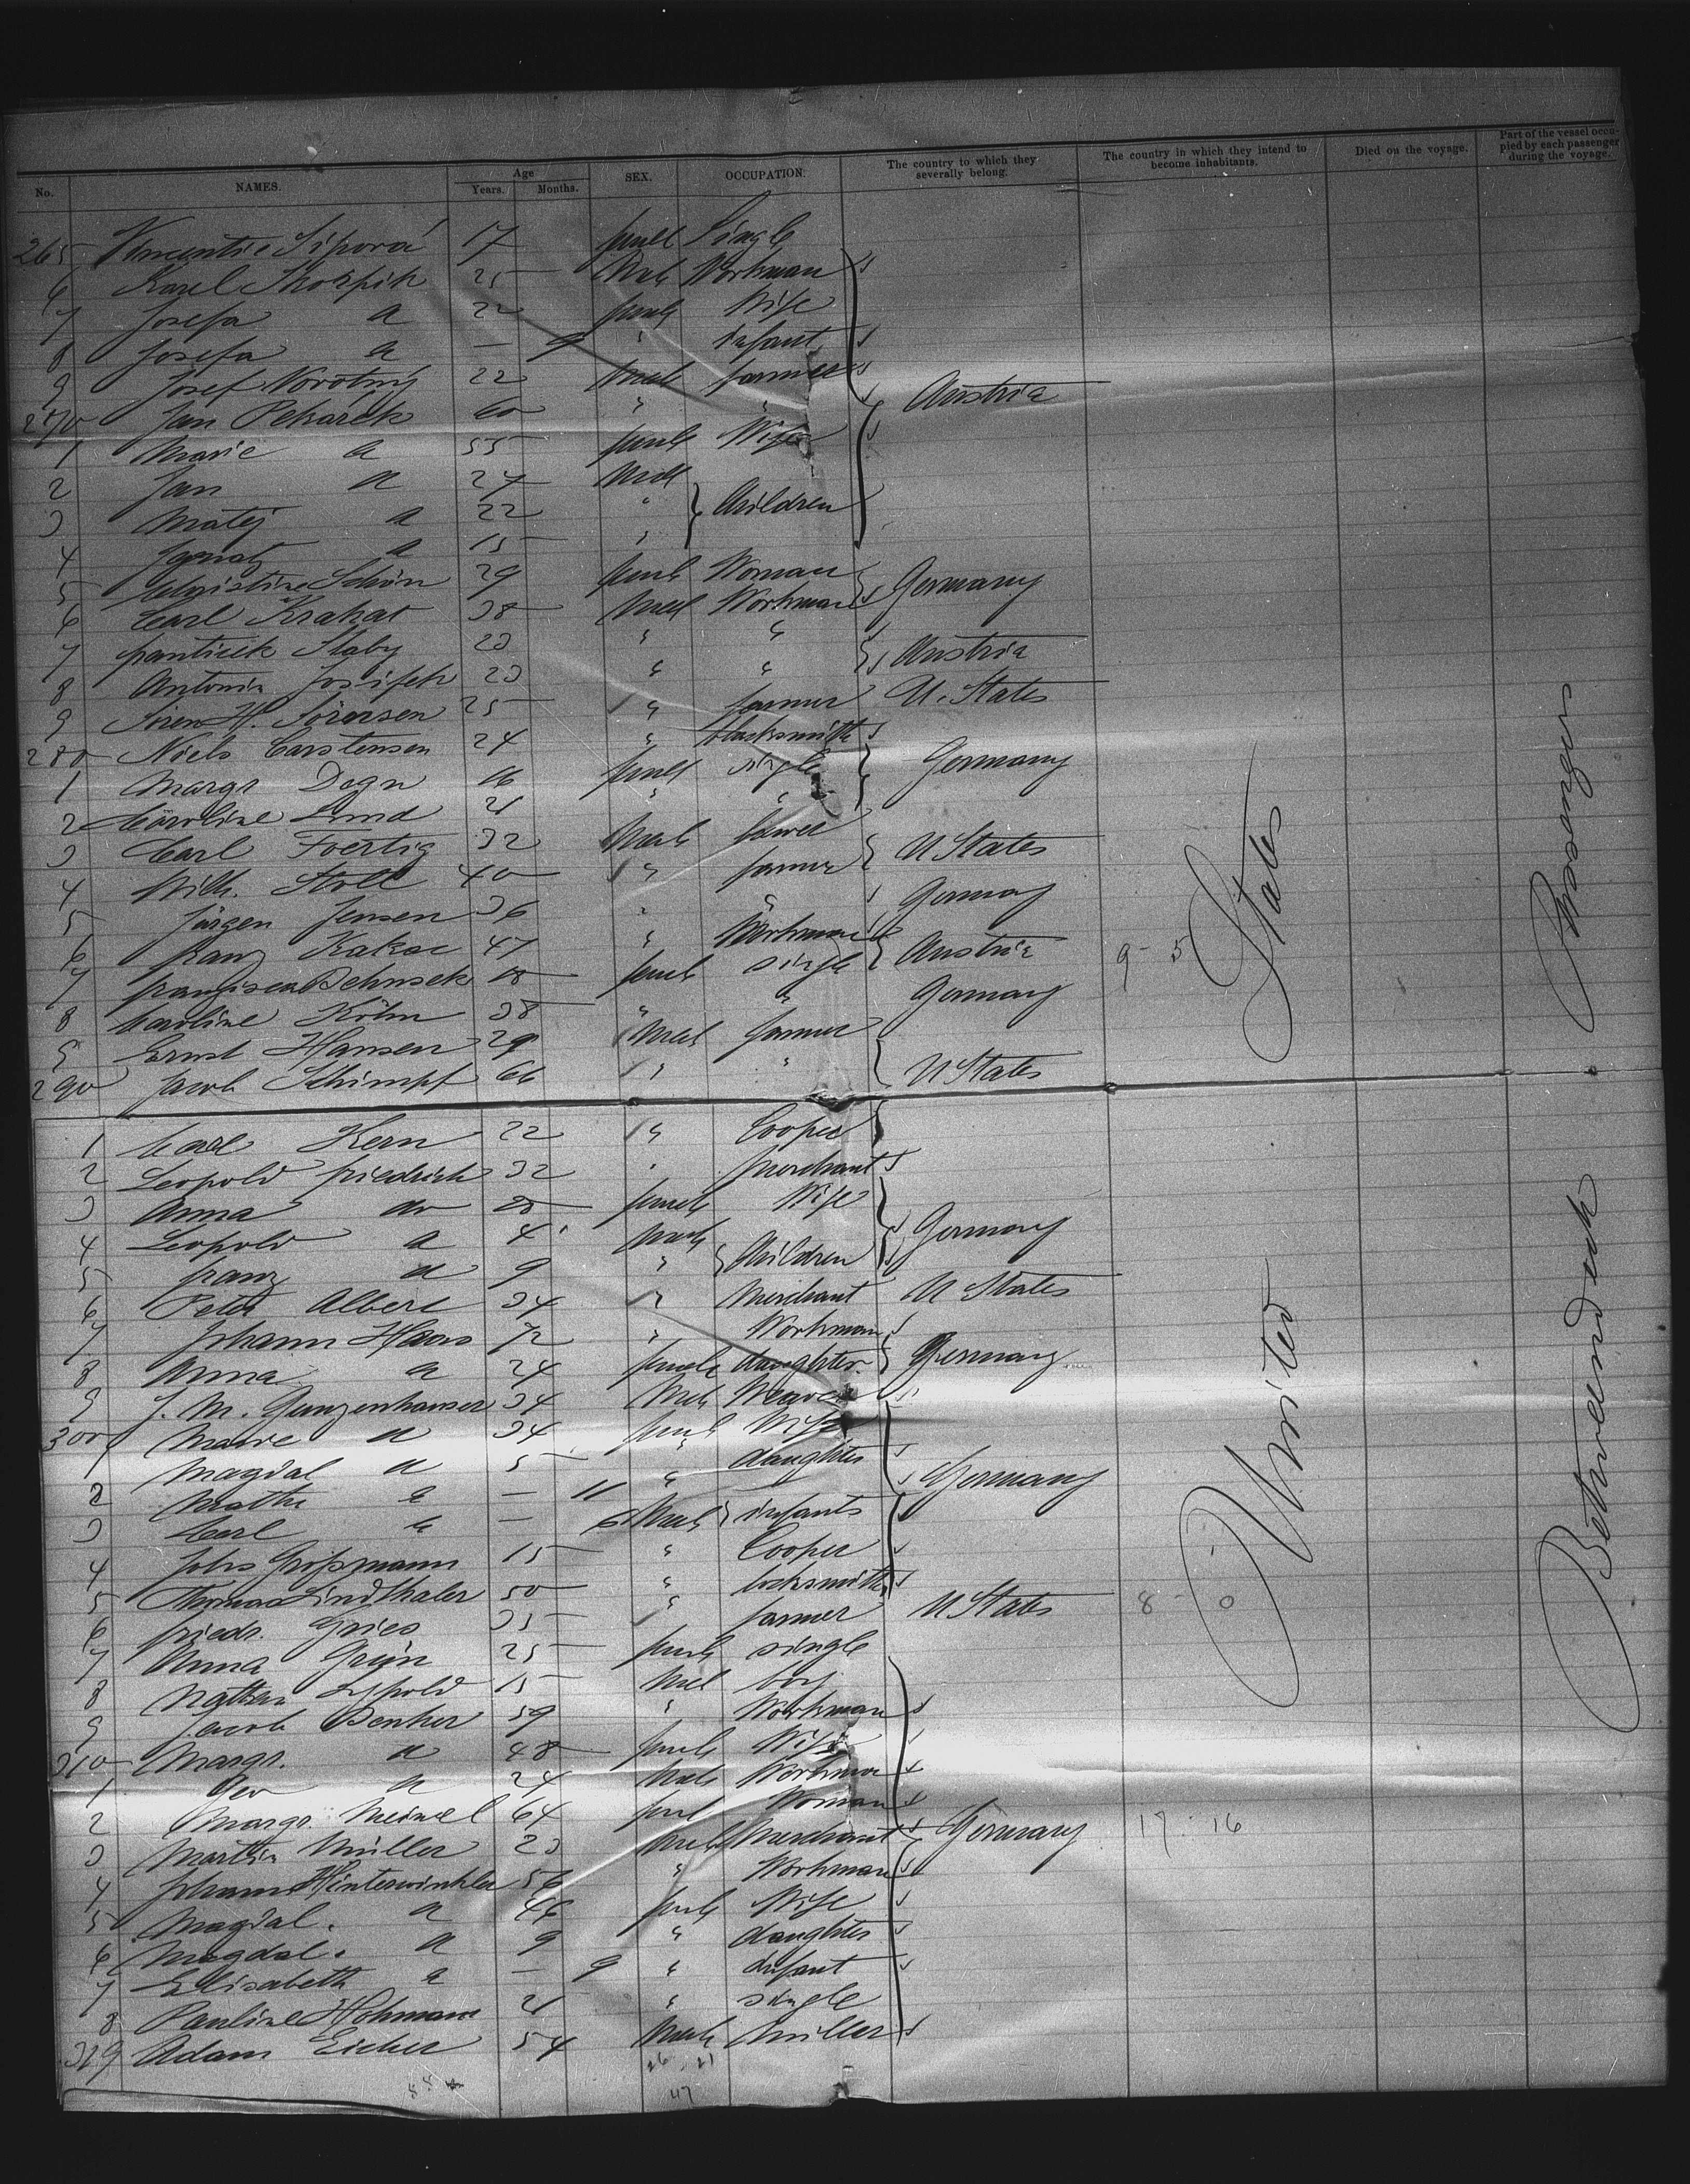 No. NAMES. Age Years. Months. SEX. OCCUPATION. The country to which they severally belong. The country in which they intend to become inhabitants. Died on the voyage. Part of the vessel occupied by each passenger during the voyage.
265 17 Single
6 Karel 25 Male Workman
7 Josefa 22 Wife
8 Josefa — 9 " infant
9 Josef Novotný 22 Male farmer
270 Jan Pekarek 60 " " Austria
1 Marie 55 Wife
2 Jan 24 Male
3 Matej 22 " Children
4 Ignatz 15 "
5 Christine Schön 29 Woman Germany
6 Carl Krahat 38 Male Workman
7 Slaby 23 " "
8 Antonin 23 " " Austria
9 Sören H. Sörensen 25 " farmer U. States
280 Niels Carstensen 24 " blacksmith
1 Margr Dogn 16 single Germany
2 Caroline Lund 21 " "
3 Carl Foertig 32 Male
4 Wilh. Stoll 40 " farmer U States
5 Jürgen Jensen 36 " " Germany
6 Franz 47 " Workman
7 18 single Austria
8 Caroline Köhn 38 " " Germany
9 Ernst Hansen 29 Male farmer
290 Jacob Schimpf 66 " " U States
1 Carl Kern 22 " Cooper
2 Leopold Friedrich 32 " Merchant
3 Anna do Wife
4 Leopold 4 Male Germany
5 Franz 9 " Children
6 Peter Albert 34 " Merchant U States
7 Johann Haas 72 " Workman
8 Anna 24 female daughter Germany
9 J. M. Gunzenhauser 34 Male Weaver
300 Marie 34 Wife
1 Magdal 5 " daughter
2 — 11 Germany
3 Carl — 6 Male infants
4 Johs Großmann 15 " Cooper
5 Thomas Lindthaler 50 " locksmith
6 Friedr. Gries 35 " farmer U States 8 - 0
7 Anna Grün 25 single
8 Nathan 15 Male boy
9 Jacob Denker 59 " Workman
310 Margr. 48 Wife
1 Geo 24 Male Workman
2 Margr. Meisel 64 Woman
3 Martin Müller 23 Male Merchant Germany 17 - 16
4 Johann Hinterwinkler 56 " Workman
5 Magdal. 46 Wife
6 Magdal. 9 " daughter
7 Elisabeth — 9 " infant
8 Pauline Hohmann 21 " single
319 Adam Eicher 54 Male Miller
26 . 21
47
9 - 5
United States
Betweendeck Passengers